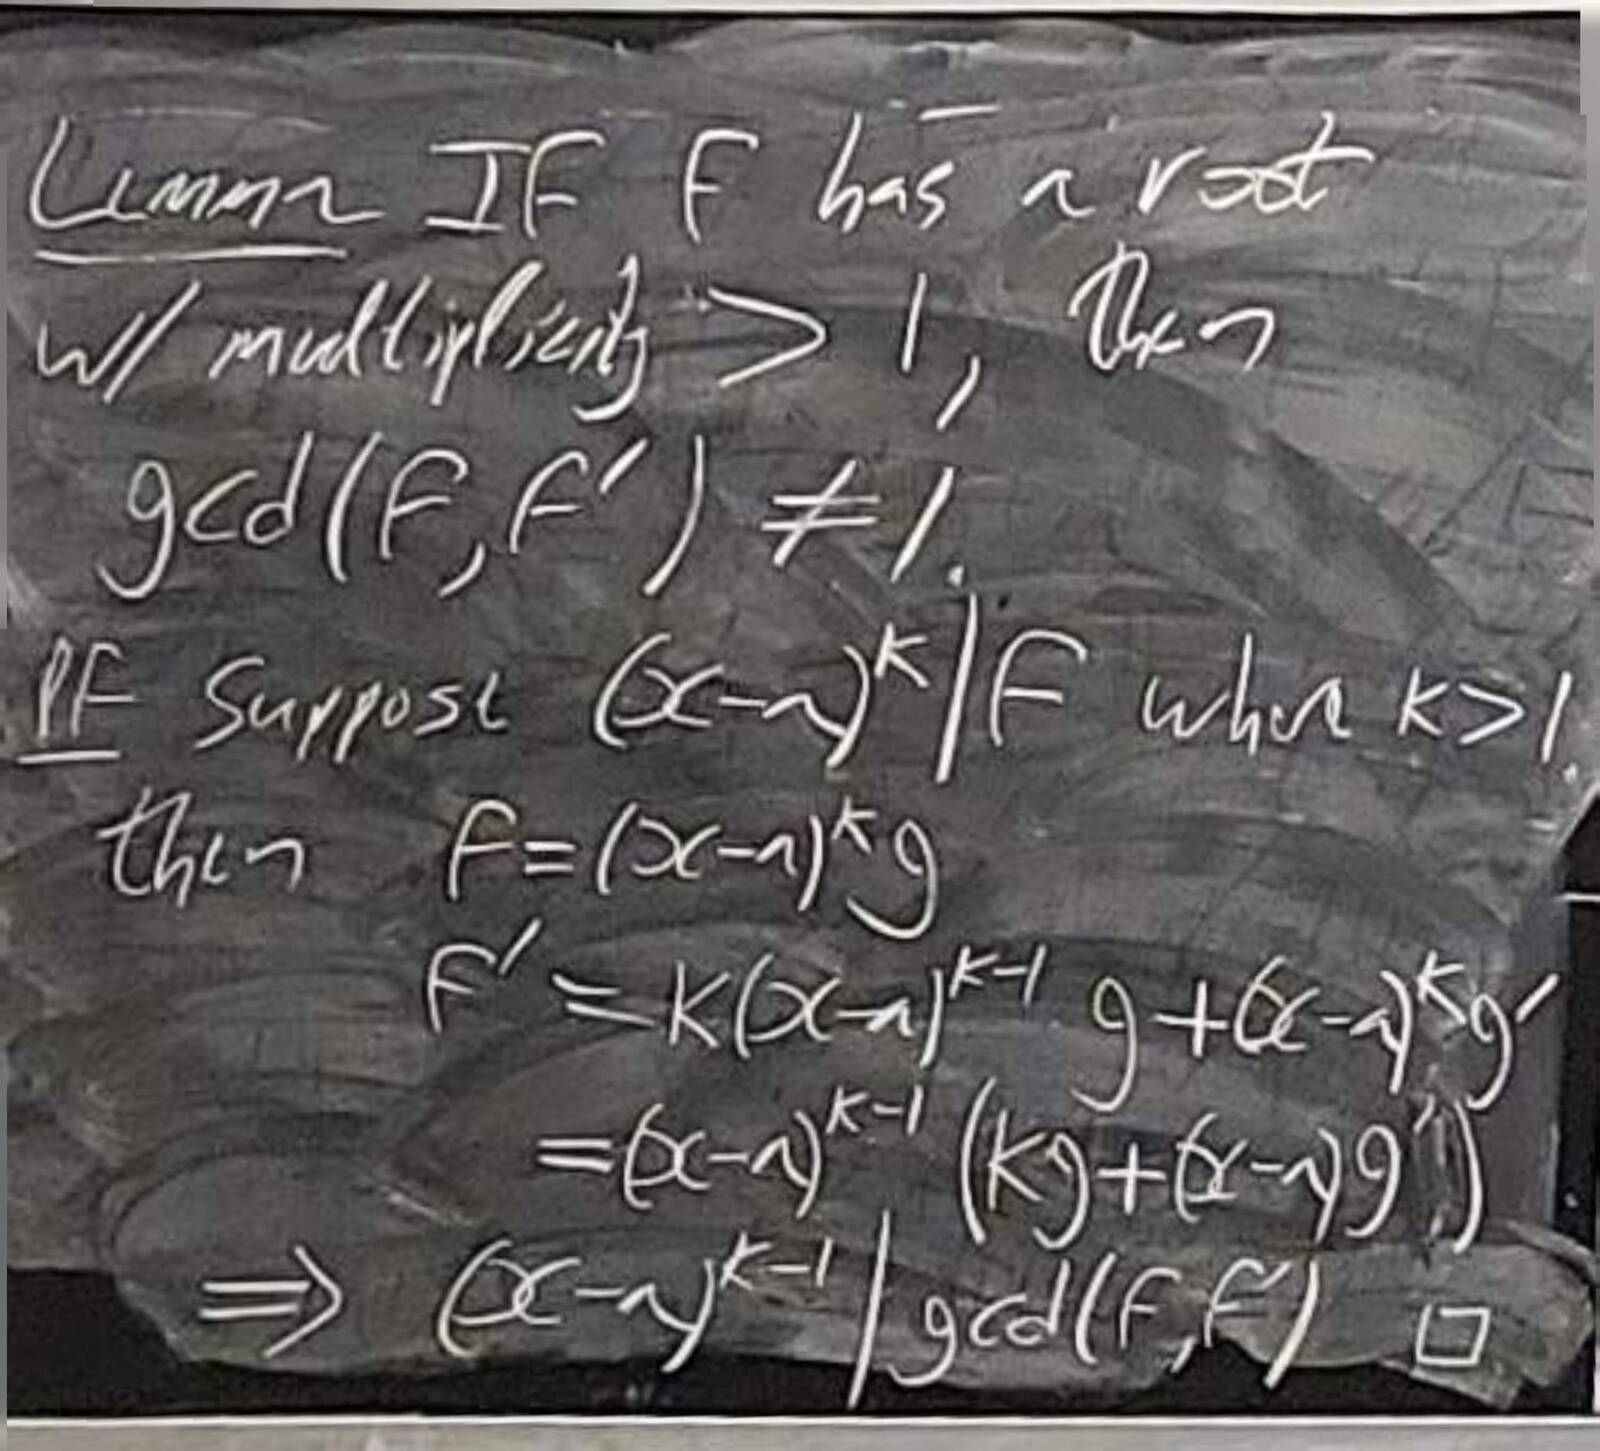 Lemma If f has a root
w/ multiplicity > 1, then
gcd(f, f') ≠ 1.
Pf Suppose (x-a)^k | f where k>1.
then f=(x-a)^k g
f' = k(x-a)^{k-1} g+(x-a)^k g'
=(x-a)^{k-1} (kg+(x-a)g')
⇒ (x-a)^{k-1} | gcd(f,f') □